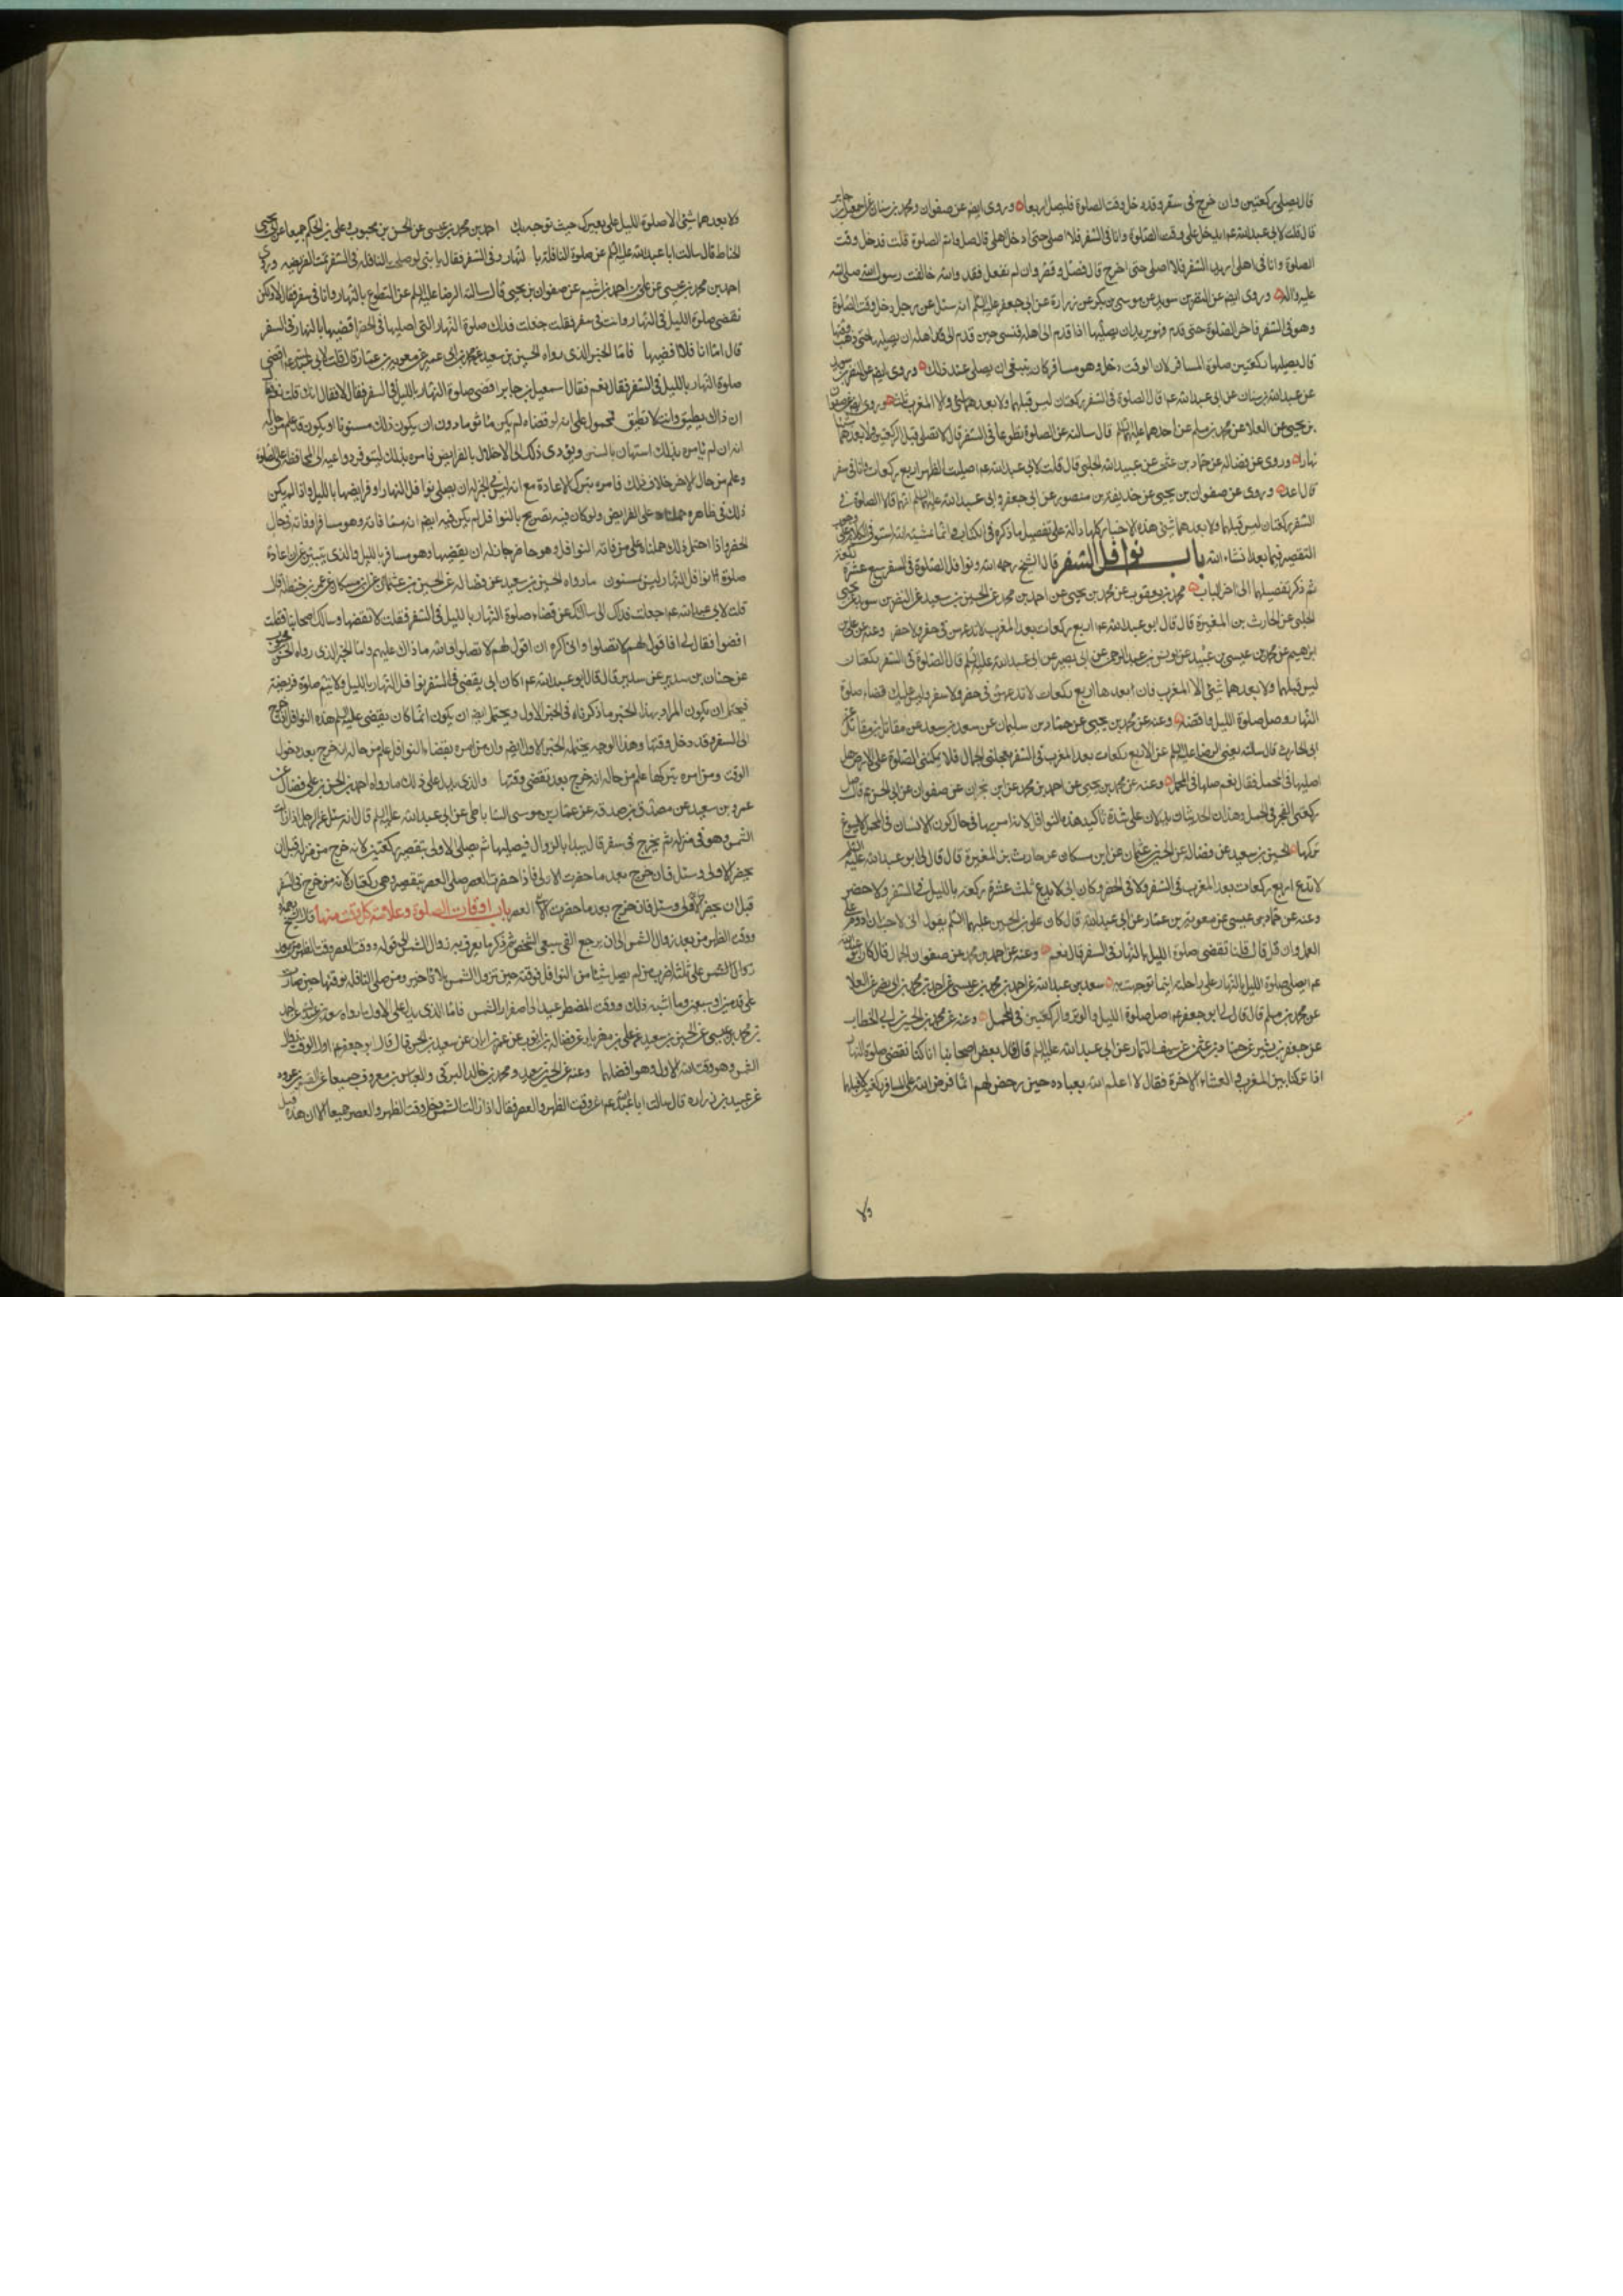 قال يصلى ركعتين وان خرج فى سفر وقد دخل وقت الصلوة فليصل اربعا وروى ايضا عن صفوان ومحمد بن سنان عن اسمعيل بن جابر
قال قلت لابى عبد الله عم يدخل على وقت الصلوة وانا فى السفر فلا اصلى حتى ادخل اهلى قال صل واتم الصلوة قلت فدخل وقت
الصلوة وانا فى اهلى اريد السفر فلا اصلى حتى اخرج قال فصل وقصر وان لم تفعل فقد والله خالفت رسول الله صلى الله
عليه واله وروى ايضا عن النضر بن سويد عن موسى بن بكر عن زرارة عن ابى جعفر عليه السلم انه سئل عن رجل دخل وقت الصلوة
وهو فى السفر فاخر الصلوة حتى قدم وهو يريد ان يصليها اذا قدم الى اهله فنسى حين قدم الى اهله ان يصليها حتى ذهب وقتها
قال يصليها ركعتين صلوة المسافر لان الوقت دخل وهو مسافر كان ينبغى ان يصلى عند ذلك وروى ايضا عن النضر بن سويد
عن عبد الله بن سنان عن ابى عبد الله عم قال الصلوة فى السفر ركعتان ليس قبلهما ولا بعدهما شئ الا المغرب ثلث وروى ايضا عن صفوان
بن يحيى عن العلا عن محمد بن مسلم عن احدهما عليهما السلم قال سالته عن الصلوة تطوعا فى السفر قال لا تصلى قبل الركعتين ولا بعدهما شيئا
نهارا وروى عن فضالة عن حماد بن عثمن عن عبيد الله الحلبى قال قلت لابى عبد الله عم اصليت الظهر اربع ركعات وانا فى سفر
قال اعد وروى عن صفوان بن يحيى عن حذيفة بن منصور عن ابى جعفر وابى عبد الله عليهما السلم انهما قالا الصلوة فى
السفر ركعتان ليس قبلهما ولا بعدهما شئ هذه الاخبار كلها دالة على تفصيل ما ذكره فى الكتاب
التقصير فيما بعد ان شاء الله باب نوافل السفر قال الشيخ رحمه الله ونوافل الصلوة فى السفر سبع عشرة ركعة
ثم ذكر تفصيلها الى اخر الباب محمد بن يعقوب عن محمد بن يحيى عن احمد بن محمد عن الحسين بن سعيد عن النضر بن سويد عن يحيى
الحلبى عن الحارث بن المغيرة قال قال ابو عبد الله عم اربع ركعات بعد المغرب لا تدعهن فى حضر ولا سفر وعنه عن على بن
ابرهيم عن محمد بن عيسى بن عبيد عن يونس بن عبد الرحمن عن ابى بصير عن ابى عبد الله عليه السلم قال الصلوة فى السفر ركعتان
ليس قبلهما ولا بعدهما شئ الا المغرب فان بعدها اربع ركعات لا تدعهن فى حضر ولا سفر وليس عليك قضاء صلوة
النهار وصل صلوة الليل واقضه وعنه عن محمد بن يحيى عن حمدان بن سليمان عن سعد بن سعد عن مقاتل بن مقاتل عن
ابى الحارث قال سالته يعنى الرضا عليه السلم عن الاربع ركعات بعد المغرب فى السفر يعجلنى الجمال فلا يمكننى الصلوة على الارض هل
اصليها فى المحمل فقال نعم صلها فى المحمل وعنه عن محمد بن يحيى عن احمد بن محمد عن ابن نجران عن صفوان عن ابى الحسن عم قال صل
ركعتى الفجر فى المحمل وهذان الحديثان يدلان على شدة تاكيد هذه النوافل لانه امر بها فى حال كون الانسان فى المحمل ولا يسوغ
تركها الحسين بن سعيد عن فضالة عن الحسين بن عثمان عن ابن مسكان عن حارث بن المغيرة قال قال لى ابو عبد الله عليه السلم
لا تدع اربع ركعات بعد المغرب فى السفر ولا فى الحضر وكان ابى لا يدع ثلث عشرة ركعة بالليل فى السفر ولا حضر
وعنه عن حماد بن عيسى عن معوية بن عمار عن ابى عبد الله قال كان على بن الحسين عليهما السلم يقول انى لاحب ان ادوم على
العمل وان قل قال قلنا تقضى صلوة الليل بالنهار فى السفر قال نعم وعنه عن احمد بن محمد عن صفوان الجمال قال كان ابو عبد الله
عم يصلى صلوة الليل بالنهار على راحلته اينما توجهت به سعد بن عبد الله عن احمد بن محمد بن عيسى عن احمد بن محمد بن ابى نصر عن العلا
عن محمد بن مسلم قال قال لى ابو جعفر عم صل صلوة الليل والوتر والركعتين فى المحمل وعنه عن محمد بن الحسين بن ابى الخطاب
عن جعفر بن بشير عن حماد بن عثمن عن سيف التمار عن ابى عبد الله عليه السلم قال قال بعض اصحابنا انا كنا نقضى صلوة النهار
اذا نزلنا بين المغرب والعشاء الاخرة فقال لا الله اعلم بعباده حين رخص لهم انما فرض الله على المسافر ركعتين لا قبلهما
ولا
ولا بعدهما شئ الا صلوة الليل على بعيرك حيث توجه بك احمد بن محمد بن عيسى عن الحسن بن محبوب وعلى بن الحكم جميعا عن ابى يحيى
الحناط قال سالت ابا عبد الله عليه السلم عن صلوة النافلة بالنهار فى السفر فقال يا بنى لو صلحت النافلة فى السفر تمت الفريضة وروى
احمد بن محمد بن عيسى عن على بن احمد بن اشيم عن صفوان بن يحيى قال سالت الرضا عليه السلم عن التطوع بالنهار وانا فى سفر فقال لا ولكن
تقضى صلوة الليل فى النهار وانت فى سفر فقلت جعلت فداك صلوة النهار التى اصليها فى الحضر اقضيها بالنهار فى السفر
قال اما انا فلا اقضيها فاما الخبر الذى رواه الحسين بن سعيد عن محمد بن ابى عمير عن معوية بن عمار قال قلت لابى عبد الله عم اقضى
صلوة النهار بالليل فى السفر فقال نعم فقال اسمعيل بن جابر اقضى صلوة النهار بالليل فى السفر فقال لا فقال انك قلت نعم
ان ذاك يطيق وانت لا تطيق فمحمول على انه لو قضاه لم يكن ماثوما دون ان يكون ذلك مسنونا او يكون قد علم من حاله
انه ان لم يامره بذلك استهان بالسنن ويؤدى ذلك الى الاخلال بالفرايض فامره بذلك ليتوفر دواعيه الى المحافظة على الصلوة
وعلم من حال الاخر خلاف ذلك فامره بترك الاعادة مع انه ليس فى الخبر انه ان يصلى نوافل النهار او فرايضها بالليل واذا لم يكن
ذلك فى ظاهره حملناه على الفرايض ولو كان فيه تصريح بالنوافل لم يكن فيه ايضا انه مما فاته وهو مسافر او فاته فى حال
الحضر واذا احتمل ذلك حملناه على من فاته النوافل وهو حاضر جاز له ان يقضيها وهو مسافر بالليل والذى يبين عن ان اعادة
صلوة نوافل النهار ليس مسنون ما رواه الحسين بن سعيد عن فضالة عن الحسين بن عثمان عن ابن مسكان عن عمر بن حنظلة قال
قلت لابى عبد الله عم جعلت فداك انى سالتك عن قضاء صلوة النهار بالليل فى السفر فقلت لا تقضها وسالك اصحابنا فقلت
اقضوا فقال لى افاقول لهم لا تصلوا وانى اكره ان اقول لهم لا تصلوا والله ما ذاك عليهم واما الخبر الذى رواه الحسن بن محبوب
عن حنان بن سدير عن سدير قال قال ابو عبد الله عم كان ابى يقضى فى السفر نوافل النهار بالليل ولا يتم صلوة فريضة
فيحتمل ان يكون المراد بهذا الخبر ما ذكرناه فى الخبر الاول ويحتمل ايضا ان يكون انما كان يقضى عليه السلم هذه النوافل اذا خرج
الى السفر وقد دخل وقتها وهذا الوجه يحتمله الخبر الاول ايضا وان من امره بقضاء النوافل علم من حاله انه خرج بعد دخول
الوقت ومن امره بتركها علم من حاله انه خرج بعد تقضى وقتها والذى يدل على ذلك ما رواه احمد بن الحسن بن على بن فضال عن
عمرو بن سعيد عن مصدق بن صدقة عن عمار بن موسى الساباطى عن ابى عبد الله عليه السلم قال انه سئل عن الرجل اذا زالت
الشمس وهو فى منزله ثم يخرج فى سفر قال يبدا بالزوال فيصليها ثم يصلى الاولى بتقصير ركعتين لانه خرج من منزله قبل ان
يحضر الاولى وسئل فان خرج بعد ما حضرت الاولى فاذا حضرت العصر صلى العصر بتقصير وهى ركعتان لانه من خرج فى السفر
قبل ان يحضر الاولى وسئل فان خرج بعد ما حضرت العصر باب اوقات الصلوة وعلامة كل وقت منها قال الشيخ رحمه الله
ووقت الظهر من بعد زوال الشمس الى ان يرجع الفئ سبعى الشخص ثم ذكر ما يعرف به زوال الشمس الى قوله ووقت العصر
زوال الشمس على ثلثة اضرب من لم يصل شيئا من النوافل فوقته حين تزول الشمس بلا تاخير ومن صلى النافلة فوقتها حين صارت
على قدمين او سبعين وما اشبه ذلك ووقت المضطر يمتد الى اصفرار الشمس فاما الذى يدل على الاول ما رواه سعد بن عبد الله عن احمد
بن محمد بن عيسى عن الحسين بن سعيد عن على بن مهزيار عن فضالة بن ايوب عن عمر بن ابان عن سعيد بن الحسن قال قال ابو جعفر عم اول الوقت زوال
الشمس وهو وقت الله الاول وهو افضلهما وعنه عن الحسين بن سعيد ومحمد بن خالد البرقى والعباس بن معروف جميعا عن القسم بن عروة
عن عبيد بن زرارة قال سالت ابا عبد الله عم عن وقت الظهر والعصر فقال اذا زالت الشمس دخل وقت الظهر والعصر جميعا الا ان هذه قبل